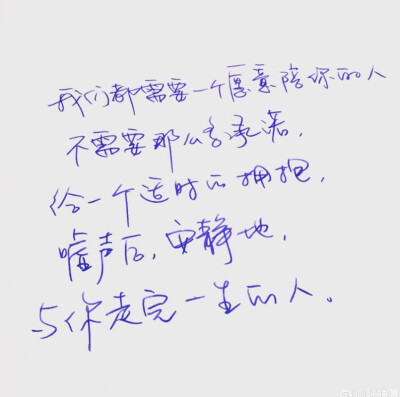 我们都需要一个愿意陪你的人
不需要那么多承诺，
给一个适时的拥抱，
嘘声后，安静地，
与你走完一生的人。